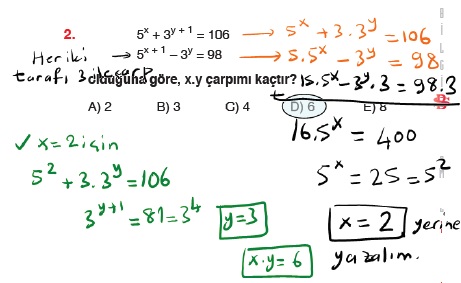 2. 5ˣ + 3ʸ⁺¹ = 106 → 5ˣ + 3.3ʸ = 106
Her iki → 5ˣ⁺¹ – 3ʸ = 98 → 5.5ˣ – 3ʸ = 98
tarafı 3 ile çarp
olduğuna göre, x.y çarpımı kaçtır? 15.5ˣ – 3ʸ.3 = 98.3
+
A) 2 B) 3 C) 4 D) 6 E) 8
16.5ˣ = 400
✓ x=2 için
5² + 3.3ʸ = 106
5ˣ = 25 = 5²
3ʸ⁺¹ = 81 = 3⁴ y=3
x = 2 yerine
yazalım.
x.y = 6